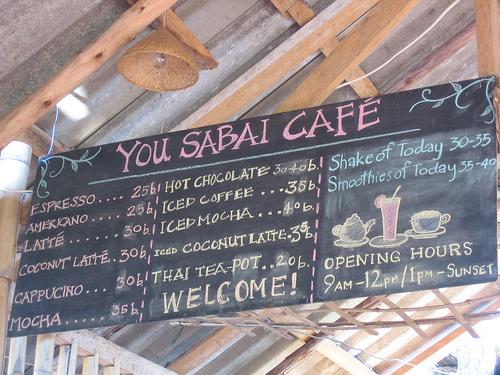 YOU SABAI CAFÉ
ESPRESSO.... 25b
AMERICANO.... 25b
LATTÉ..... 30b
COCONUT LATTE.. 30b
CAPPUCINO... 30b
MOCHA..... 35b
HOT CHOCOLATE 30-40b
ICED COFFEE... 35b
ICED MOCHA... 40b
ICED COCONUT LATTE. 35b
THAI TEA-POT.. 20b.
WELCOME!
Shake of Today 30-35
Smoothies of Today 35-40
OPENING HOURS
9AM-12PM/1PM-SUNSET